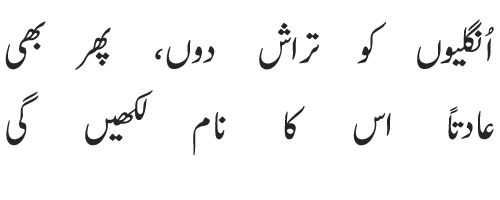 اُنگلیوں کو تراش دوں، پھر بھی
عادتاً اس کا نام لکھیں گی